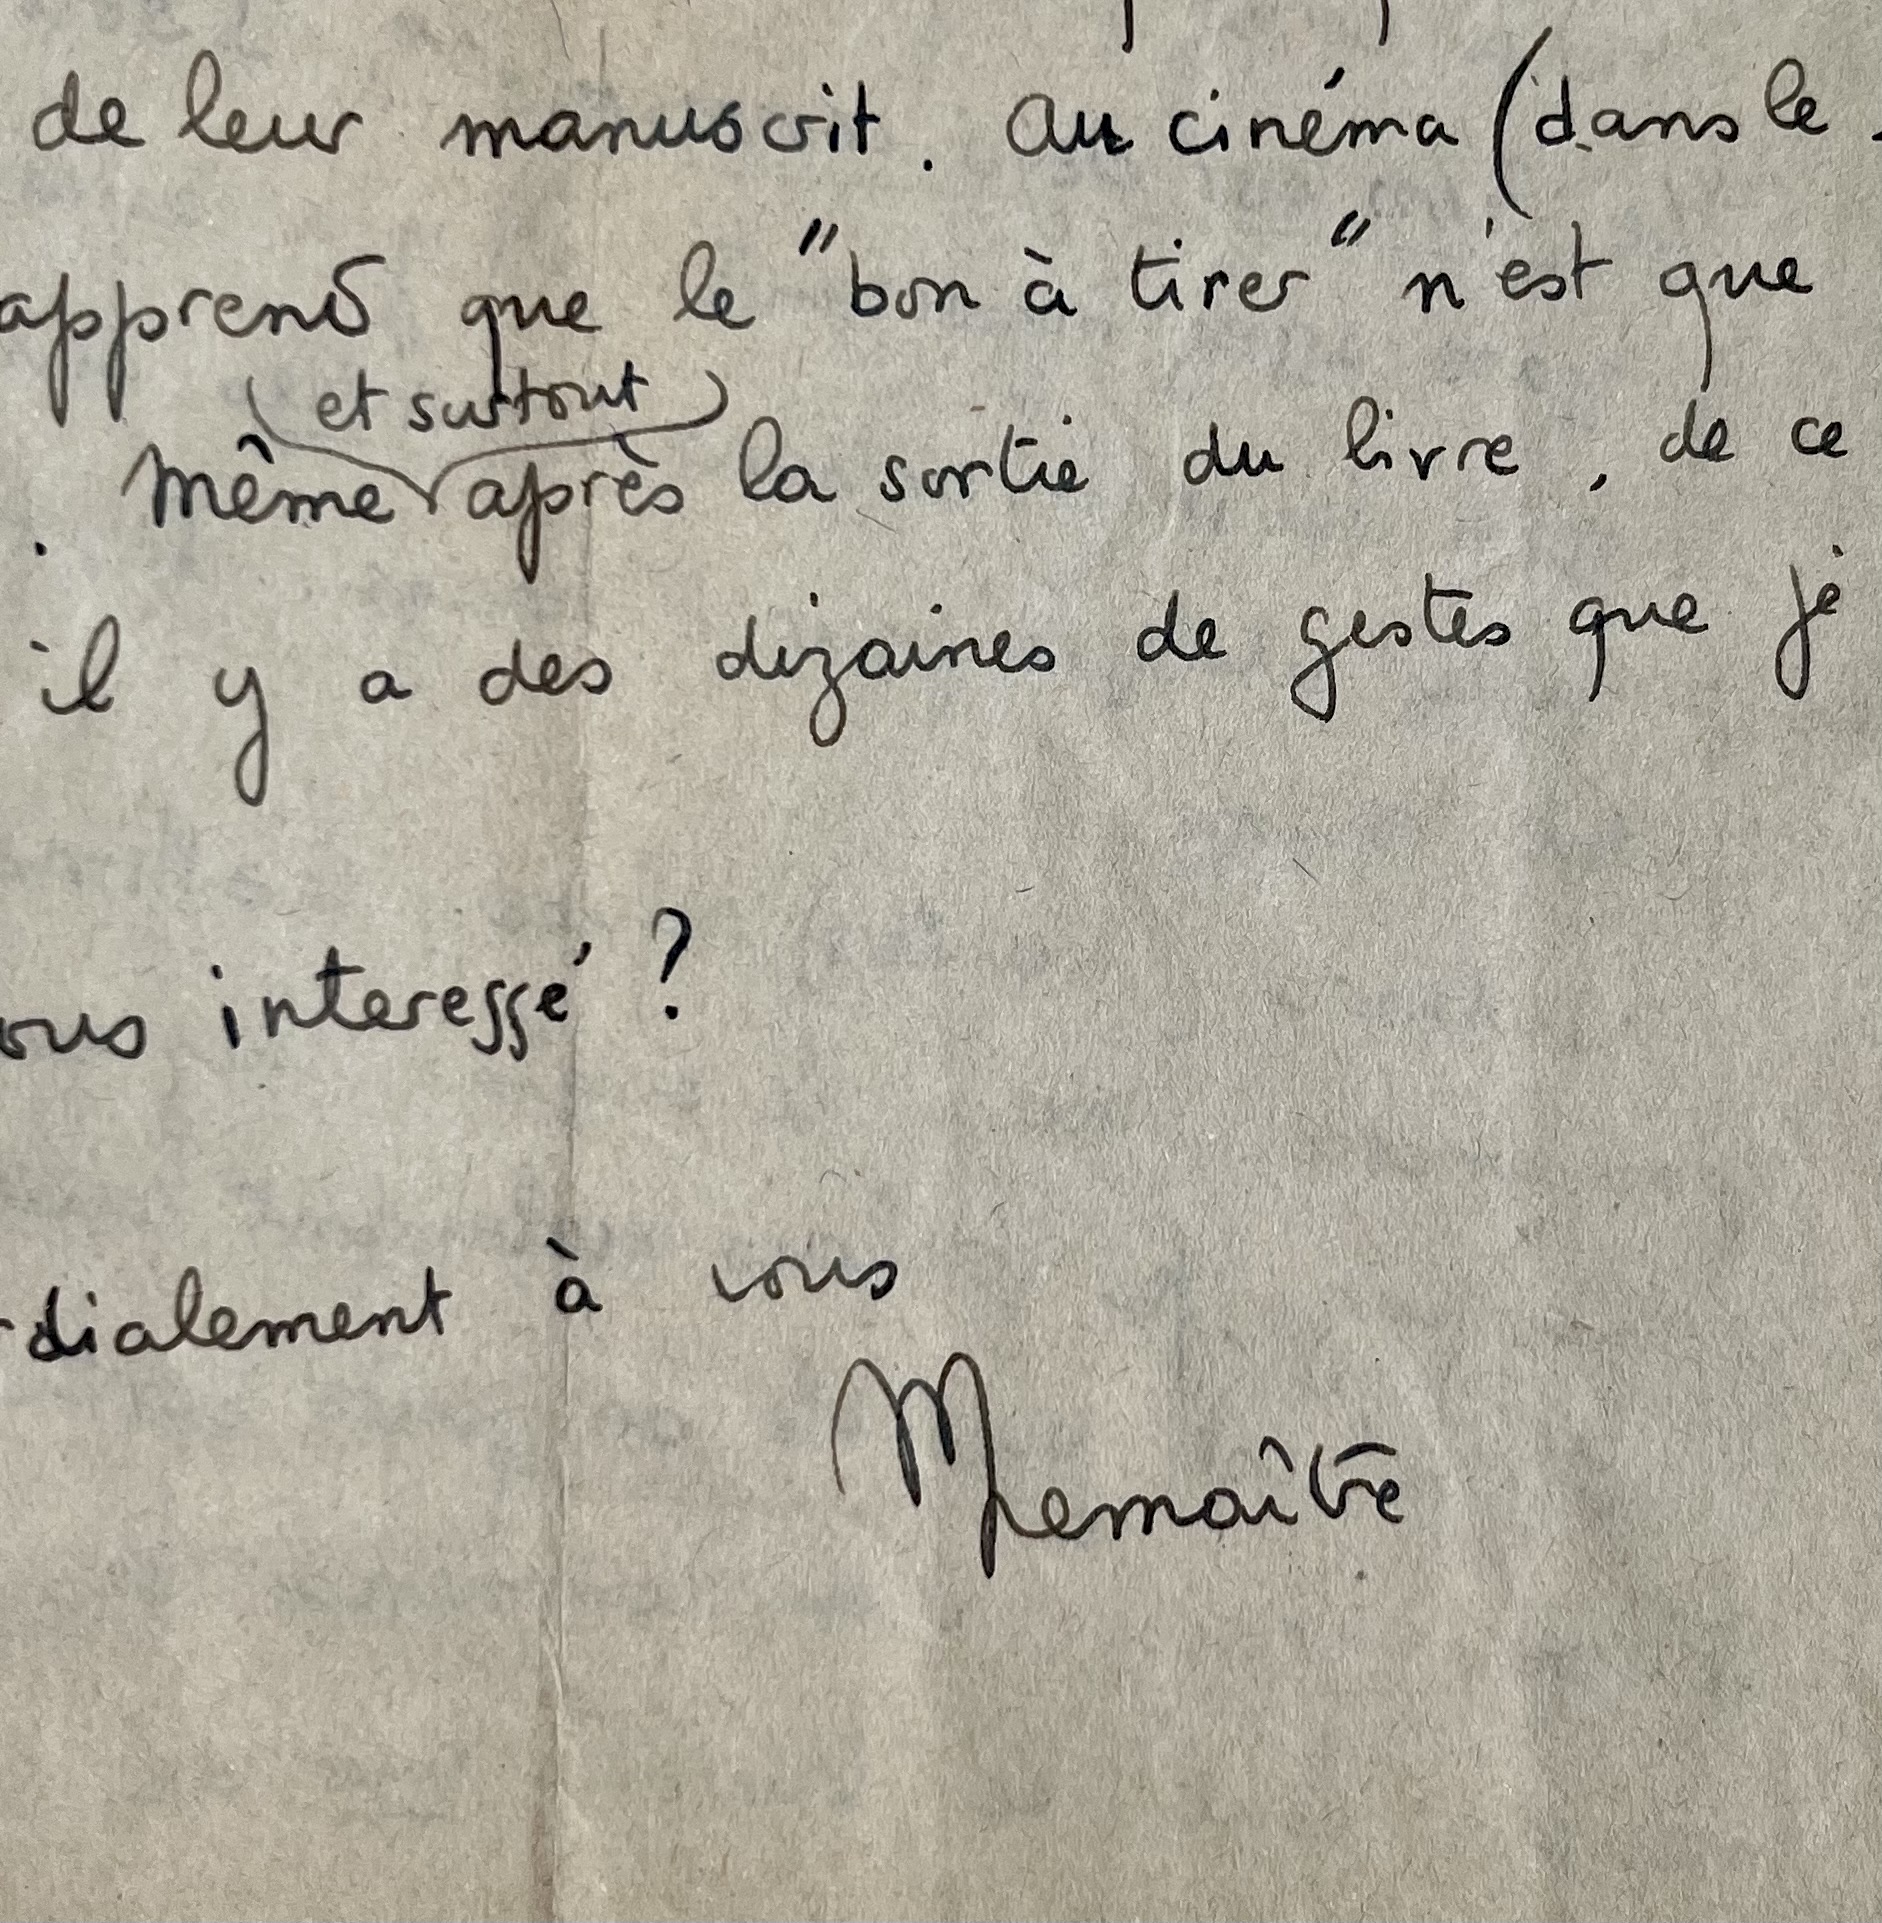 de leur manuscrit. Au cinéma (dans le
apprend que le "bon à tirer" n'est que
et surtout
. Même après la sortie du livre, de ce
il y a des dizaines de gestes que je
ous interessé ?
dialement à vous
MLemaître